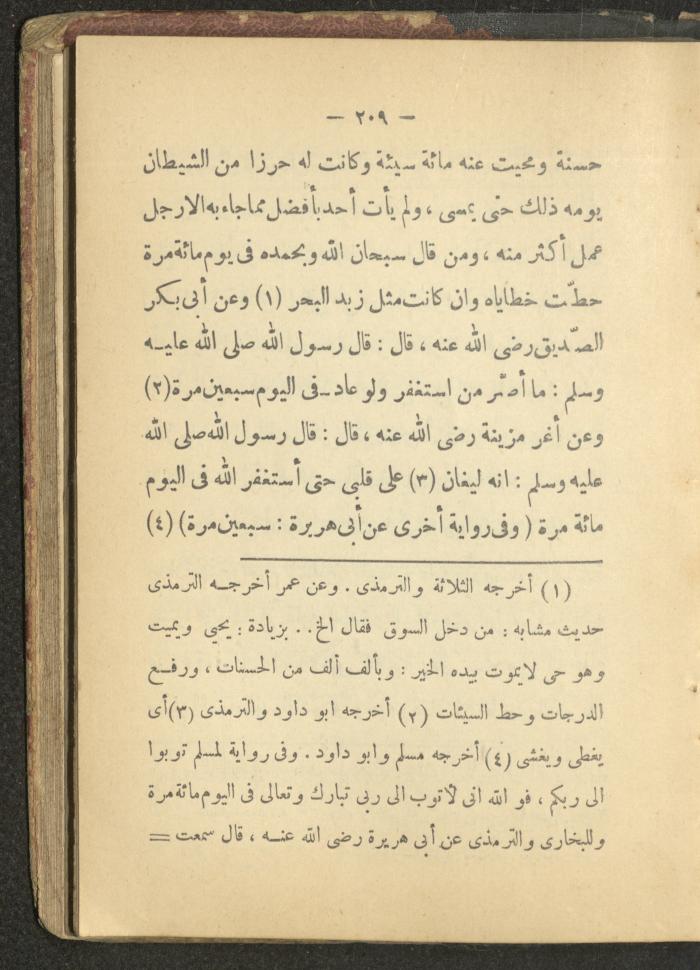 — ٢٠٩ —
حسنة ومحيت عنه مائة سيئة وكانت له حرزا من الشيطان
يومه ذلك حتى يمسى ، ولم يأت أحد بأفضل مما جاء به الا رجل
عمل أكثر منه ، ومن قال سبحان الله وبحمده فى يوم مائة مرة
حطّت خطاياه وان كانت مثل زبد البحر (١) وعن أبى بكر
الصّديق رضى الله عنه ، قال : قال رسول الله صلى الله عليـه
وسلم : ما أصّر من استغفر ولو عاد ـ فى اليوم سبعين مرة (٢)
وعن أغر مزينة رضى الله عنه ، قال : قال رسول الله صلى الله
عليه وسلم : انه ليغان (٣) على قلبى حتى أستغفر الله فى اليوم
مائة مرة ( وفى رواية أخرى عن أبى هريرة : سبعين مرة ) (٤)
(١) أخرجه الثلاثة والترمذى . وعن عمر أخرجـه الترمذى
حديث مشابه : من دخل السوق فقال الخ . . بزيادة : يحيى ويميت
وهو حى لا يموت بيده الخير : وبألف ألف من الحسنات ، ورفـع
الدرجات وحط السيئات (٢) أخرجه ابو داود والترمذى (٣) أى
يغطى ويغشى (٤) أخرجه مسلم وابو داود . وفى رواية لمسلم توبوا
الى ربكم ، فو الله انى لأتوب الى ربى تبارك وتعالى فى اليوم مائة مرة
وللبخارى والترمذى عن أبى هريرة رضى الله عنـه ، قال سمعت =